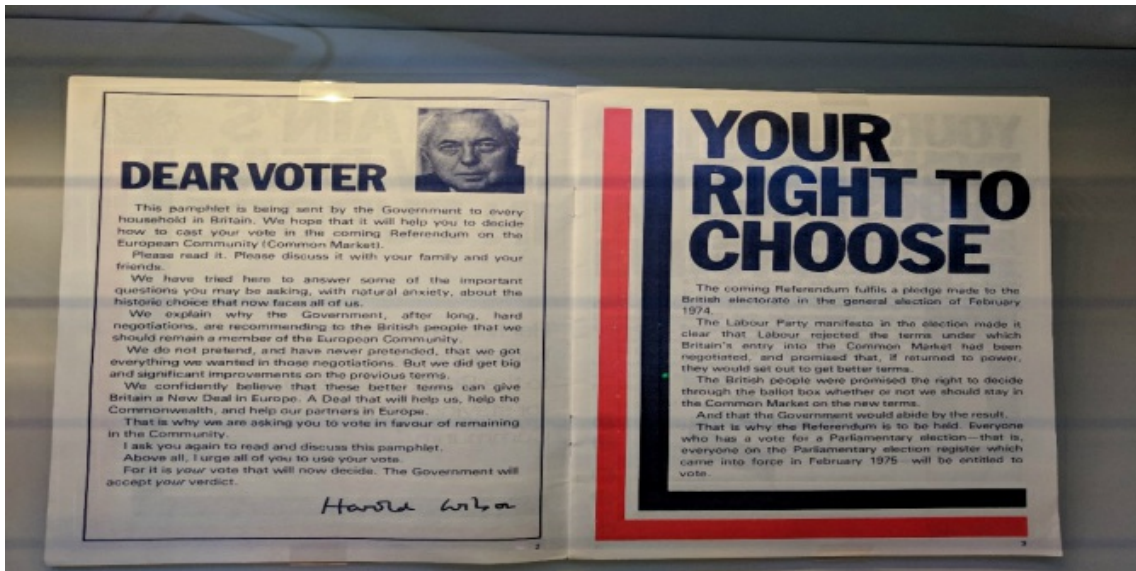 DEAR VOTER
This pamphlet is being sent by the Government to every
household in Britain. We hope that it will help you to decide
how to cast your vote in the coming Referendum on the
European Community (Common Market).
Please read it. Please discuss it with your family and your
friends.
We have tried here to answer some of the important
questions you may be asking, with natural anxiety, about the
historic choice that now faces all of us.
We explain why the Government, after long, hard
negotiations, are recommending to the British people that we
should remain a member of the European Community.
We do not pretend, and have never pretended, that we got
everything we wanted in those negotiations. But we did get big
and significant improvements on the previous terms.
We confidently believe that these better terms can give
Britain a New Deal in Europe. A Deal that will help us, help the
Commonwealth, and help our partners in Europe.
That is why we are asking you to vote in favour of remaining
in the Community.
I ask you again to read and discuss this pamphlet.
Above all, I urge all of you to use your vote.
For it is your vote that will now decide. The Government will
accept your verdict.
Harold Wilson
2
YOUR
RIGHT TO
CHOOSE
The coming Referendum fulfils a pledge made to the
British electorate in the general election of February
1974.
The Labour Party manifesto in the election made it
clear that Labour rejected the terms under which
Britain's entry into the Common Market had been
negotiated, and promised that, if returned to power,
they would set out to get better terms.
The British people were promised the right to decide
through the ballot box whether or not we should stay in
the Common Market on the new terms.
And that the Government would abide by the result.
That is why the Referendum is to be held. Everyone
who has a vote for a Parliamentary election—that is,
everyone on the Parliamentary election register which
came into force in February 1975—will be entitled to
vote.
3